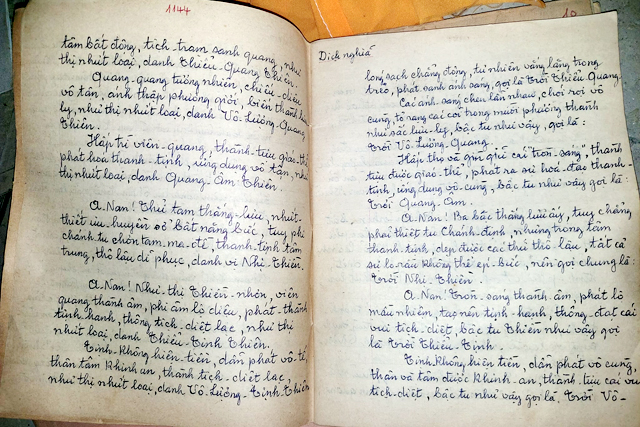 1144
tâm bất động, tích trạm sanh quang, như
thị nhứt loại, danh Thiểu-Quang Thiên.
Quang-quang tương nhiên, chiếu-diệu
vô tận, ánh thập phương giới, biến thành lưu
ly, như thị nhứt loại, danh Vô-Lượng-Quang
Thiên.
Hấp trì viên-quang, thành-tựu giáo-thể
phát hóa thanh-tịnh, ứng dụng vô tận, như
thị nhứt loại, danh Quang-Âm-Thiên.
A-Nan! Thử tam thắng-lưu, nhứt-
thiết ưu-huyền sở bất năng bức, tuy phi
chánh tu chơn tam-ma-đề, thanh-tịnh tâm
trung, thô lậu dĩ phục, danh vi Nhị-Thiền.
A-Nan! Như-thị Thiên-nhơn, viên
quang thành âm, phi âm lộ diệu, phát-thành
tinh-hạnh, thông tịch-diệt lạc, như thị
nhứt loại, danh Thiểu-Tịnh Thiên.
Tịnh-không hiện-tiền, dẫn phát vô-tế,
thân tâm khinh an, thành tịch-diệt lạc,
như thị nhứt loại, danh Vô-Lượng-Tịnh Thiên
Dịch nghĩa
10
lóng sạch chẳng động, tự nhiên vắng lặng trong
trẻo, phát sanh ánh sáng, gọi là Trời Thiểu Quang.
Cái ánh-sáng chen lẫn nhau, chói rọi vô
cùng, tỏ sáng cái cõi trong mười phương thành
như sắc lưu-ly, bậc tu như vậy, gọi là:
Trời Vô-Lượng-Quang.
Hấp thọ và gìn giữ cái "tròn-sáng", thành
tựu được giáo-thể, phát ra sự hóa-đạo thanh-
tịnh, ứng dụng vô-cùng, bậc tu như vậy gọi là:
Trời Quang-Âm.
A-Nan! Ba bậc thắng lưu ấy, tuy chẳng
phải thiệt tu Chánh-định, nhưng trong tâm
thanh-tịnh, dẹp được các thứ thô lậu, tất cả
sự lo-rầu không thể ép-bức, nên gọi chung là:
Trời Nhị-Thiền.
A-Nan! Tròn-sáng thành-âm, phát lộ
mầu nhiệm, tạo nên tinh-hạnh, thông-đạt cái
vui tịch-diệt, bậc tu Thiền như vậy gọi
là Trời Thiểu-Tịnh.
Tịnh không hiện tiền, dẫn phát vô cùng,
thân và tâm được khinh-an, thành-tựu cái vui
tịch-diệt, bậc tu như vậy gọi là Trời Vô-